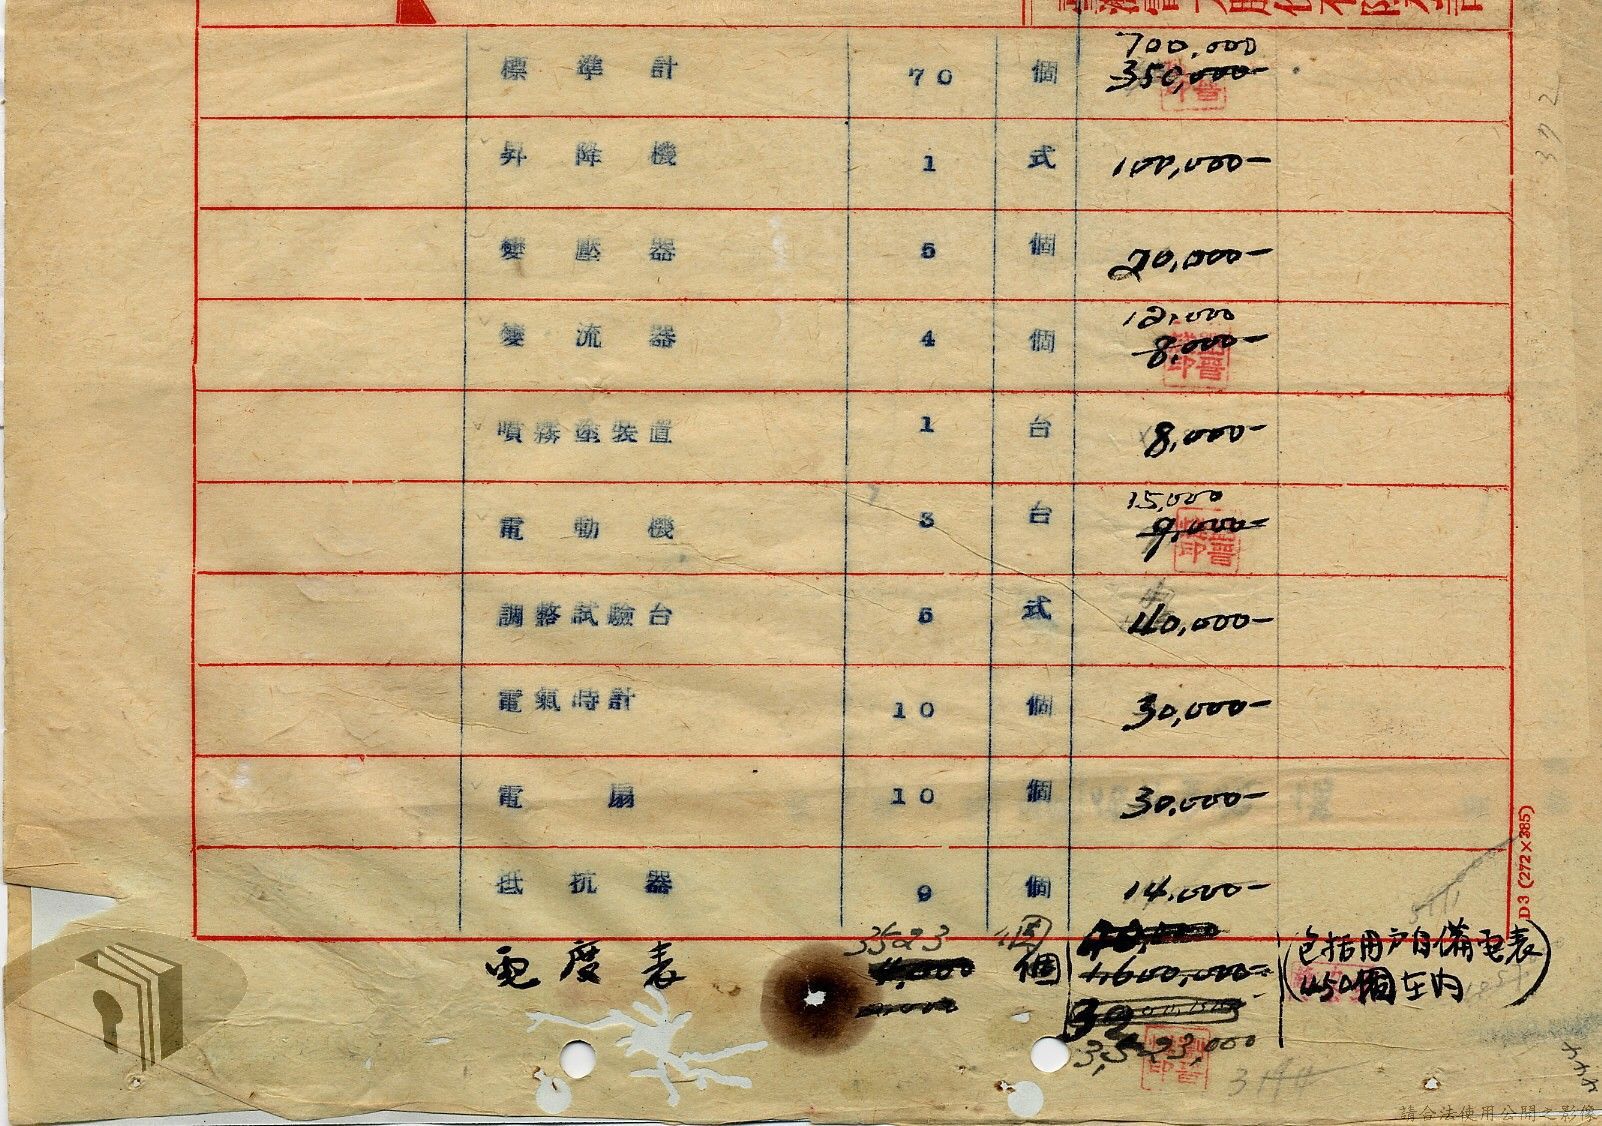 標準計 70 個 700,000
350,000-
昇降機 1 式 100,000-
變壓器 5 個 20,000-
變流器 4 個 12,000
8,000-
噴霧塗裝置 1 台 8,000-
電動機 3 台 15,000
9,000-
調整試驗台 5 式 40,000-
電氣時計 10 個 30,000-
電扇 10 個 30,000-
抵抗器 9 個 14,000-
電度表 3523 個 4,600,000-
3,523,000
(包括用戶自備電表
450個在內)
D3 (272×385)
372
請合法使用公開之影像